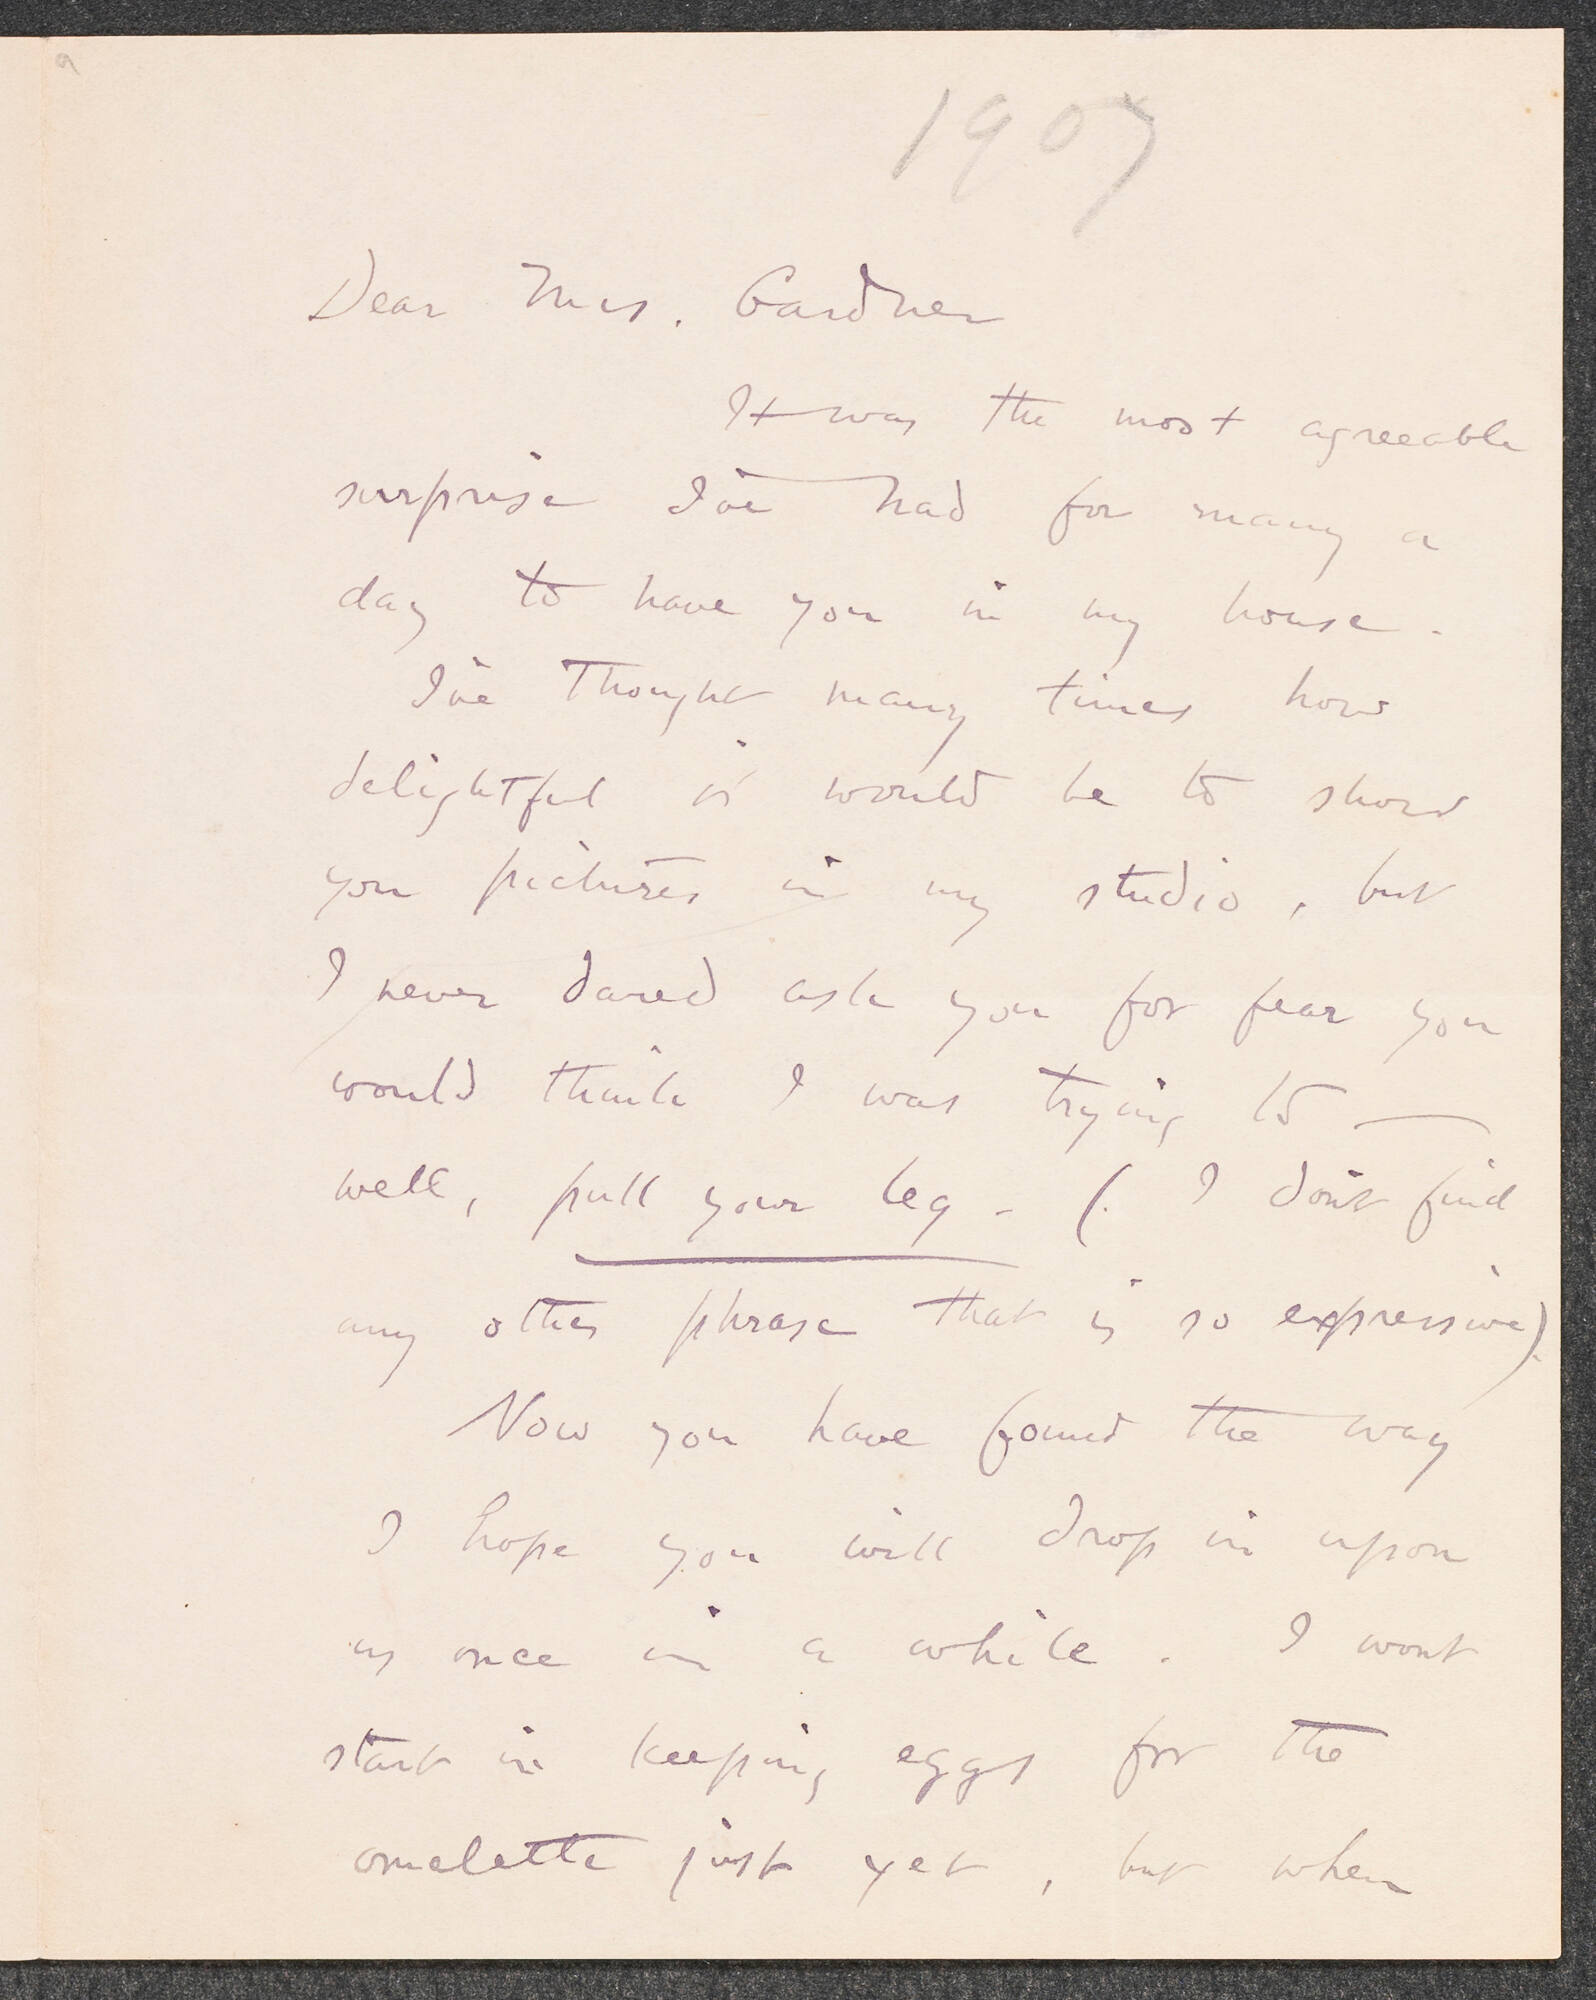 1907
Dear Mrs. Gardner
It was the most agreeable
surprise I've had for many a
day to have you in my house.
I've thought many times how
delightful it would be to show
you pictures in my studio, but
I never dared ask you for fear you
would think I was trying to —
well, pull your leg. (I don't find
any other phrase that is so expressive).
Now you have found the way
I hope you will drop in upon
us once in a while. I wont
start in keeping eggs for the
omelette just yet, but when